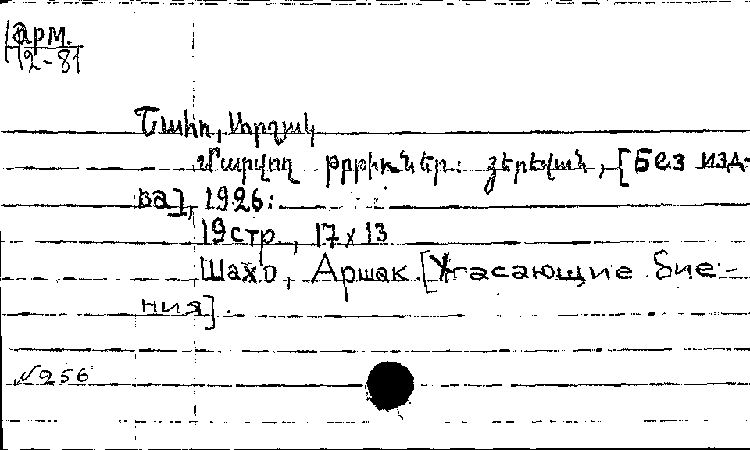 Арм.
12-81
Շահո, Արշակ
Մարվող թրթիռներ: Երեվան, [без изд-
ва], 1926:
19 стр., 17 x 13
Шахо, Аршак [Угасающие бие-
ния].
№256